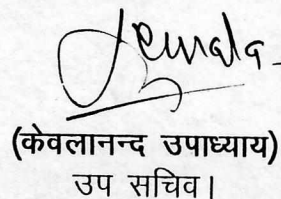 (केवलानन्द उपाध्याय)
उप सचिव।